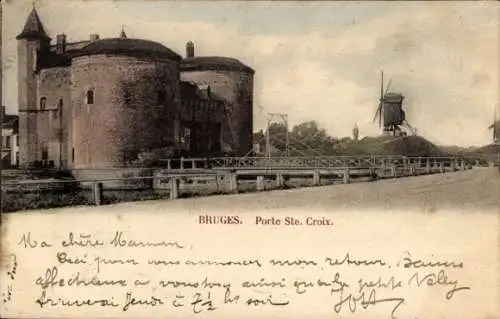 BRUGES. Porte Ste. Croix.
Ma chère Maman
Ceci pour vous annoncer mon retour. Baisers
affectueux à vous tous ainsi qu'à la petite Valey
J'arriverai Jeudi à 7½ h soir